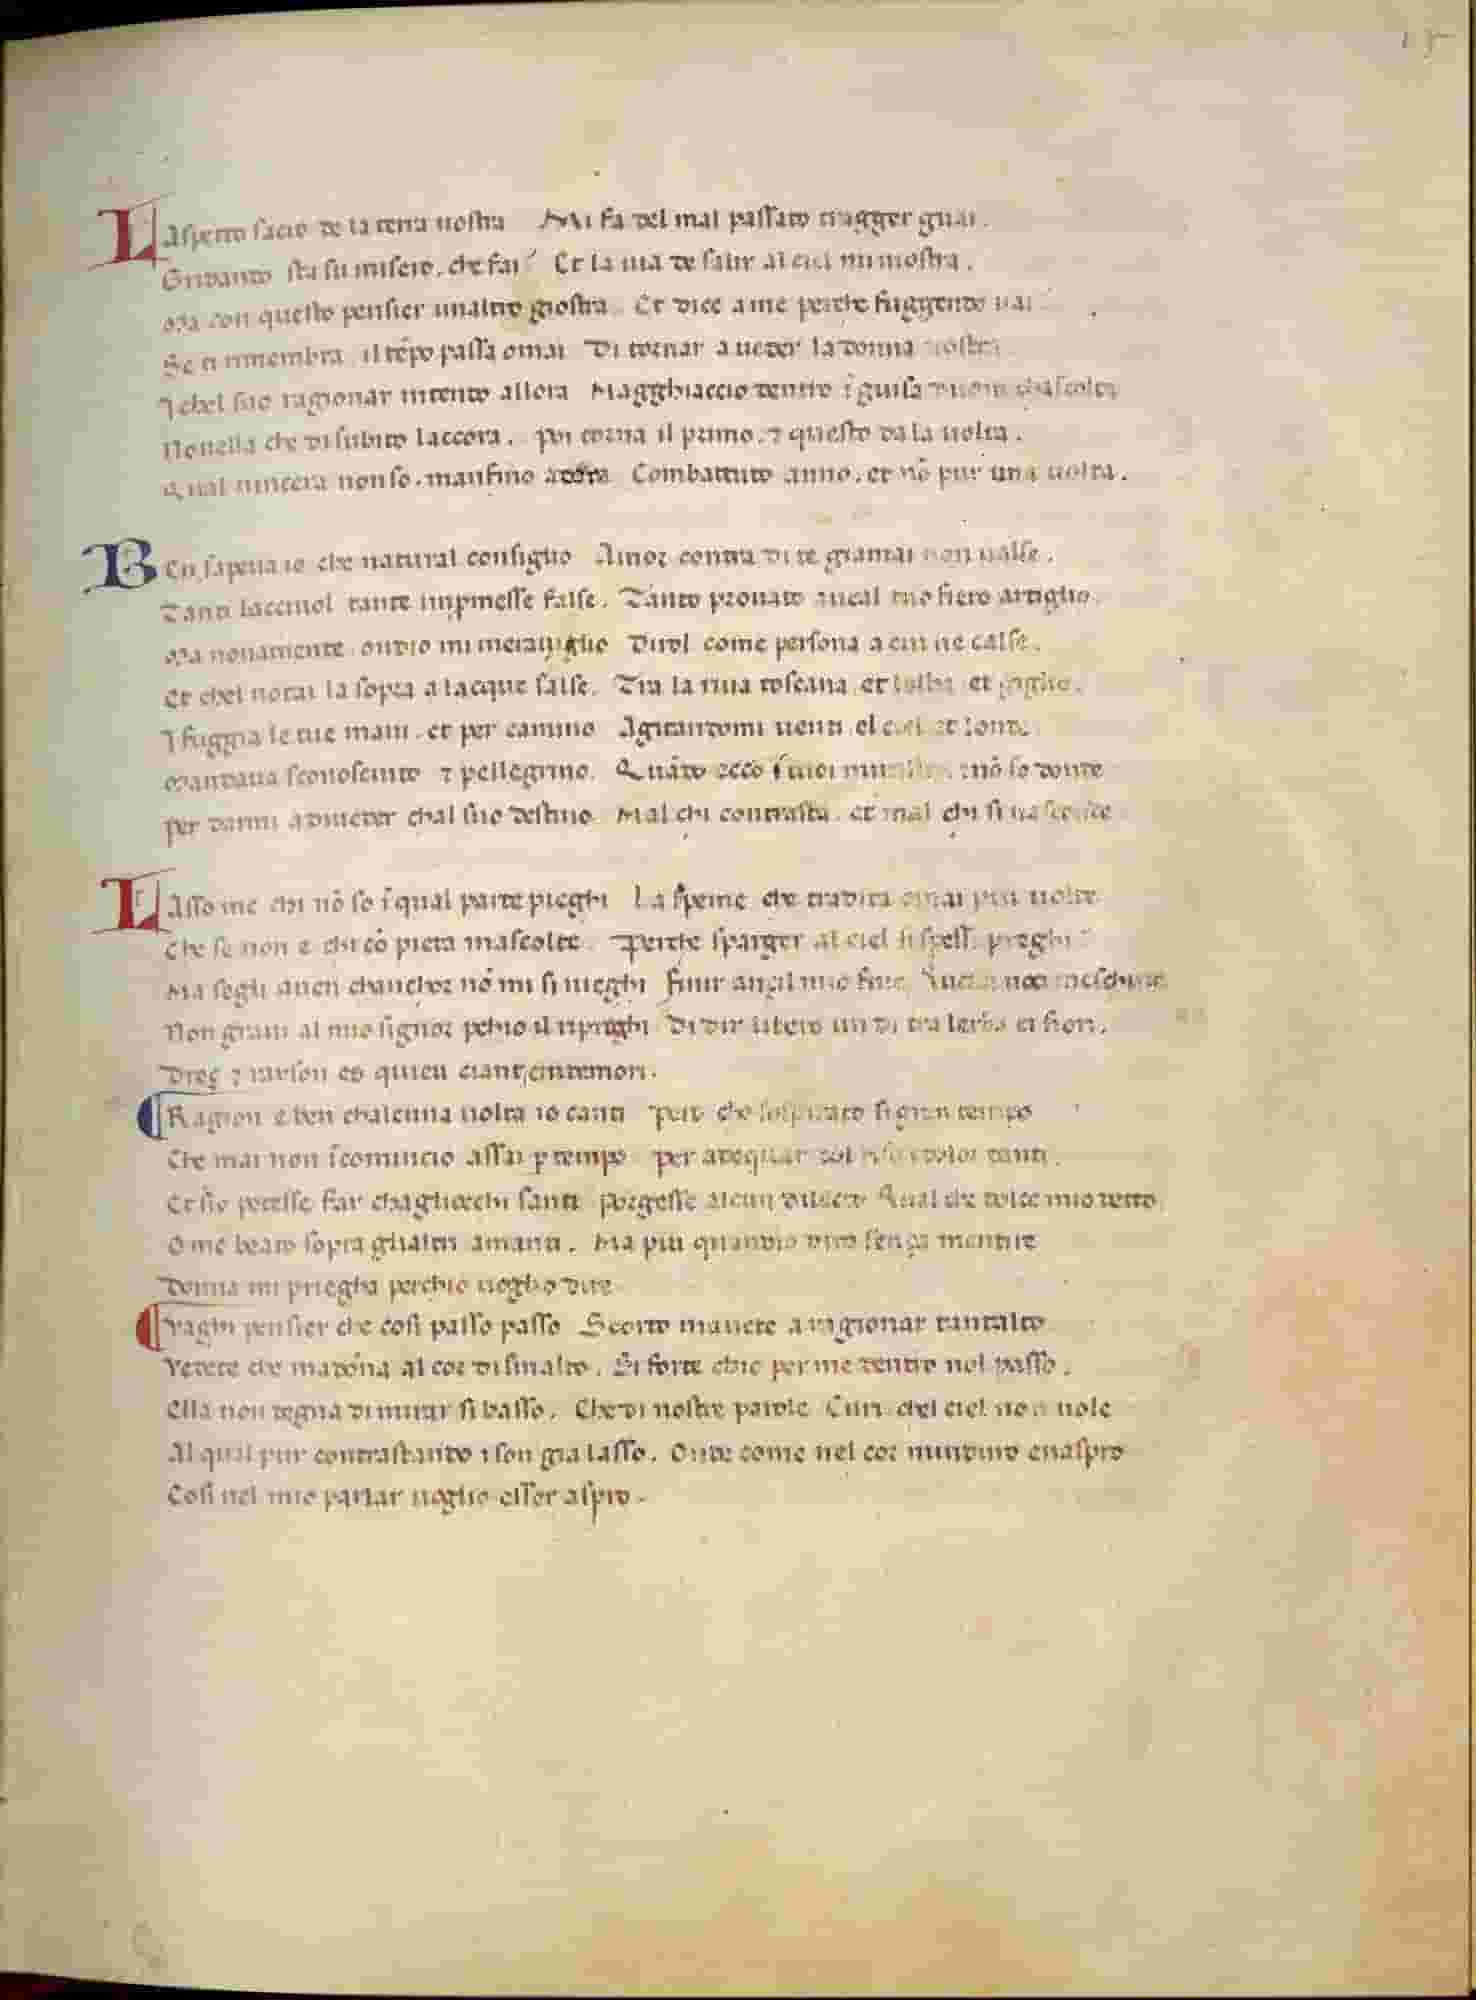 15
Laspetto sacro de la terra uostra Mi fa del mal passato tragger guai.
Gridando sta su misero, che fai? Et la uia de salir al ciel mi mostra.
Ma con questo pensier unaltro giostra. Et dice a me perche fuggendo uai
Se ti rimembra, il tēpo passa omai Di tornar a ueder la donna nostra
I chel suo ragionar intendo allora Magghiaccio dentro ī guisa duom chascolta
Nouella che di subito laccora. poi torna il primo, ⁊ questo da la uolta.
Qual uincera non so, manfino Combattuto anno, et nō pur una uolta.
Ben sapeua io che natural consiglio Amor contra di te giamai non ualse.
Tanti lacciuol tante impromesse false. Tanto prouato aueal tuo fiero artiglio.
Ma nouamente, ondio mi merauiglio Dirol come persona a cui ne calse.
Et chel notai la sopra a lacque salse. Tra la riua toscana et lelba et giglio.
I fuggia le tue mani, et per camino Agitandomi uenti el ciel et londe.
Mandaua sconosciuto ⁊ pellegrino. Quādo ecco i tuoi nō so donde
per darmi a diueder chal suo destino Mal chi contrasta, et mal chi si nasconde
Lasso me chi nō so ī qual parte pieghi La speme che tradita omai piu uolte
Che se non e chi cō pieta mascolte. Perche sparger al ciel si spessi preghi
Ma segli auen chanchor nō mi si nieghi Finir anzil mio fine
Non graui al mio signor perchio il ripreghi Di dir libero un di tra lerba ei fiori.
Drez ⁊ rayson es quieu ciant
Ragion e ben chalcuna uolta io canti pero che sospirato si gran tempo
Che mai non īcomincio assai ꝑ tempo per adequar col riso i dolor tanti.
Et sio potesse far chagliocchi santi porgesse alcun diletto Qual che dolce mio detto
O me beato sopra glialtri amanti. Ma piu quandio diro senza mentire
Donna mi priegha perchio uoglio dire
Vaghi pensier che cosi passo passo Scorto mauete a ragionar tantalto
Vedete che madōna al cor di smalto. Si forte chio per me dentro nol passo.
Ella non degna di mirar si basso. Che di nostre parole Curi chel ciel non uole
Al qual pur contrastando i son gia lasso. Onde come nel cor minduro enaspro
Cosi nel mio parlar uoglio esser aspro.